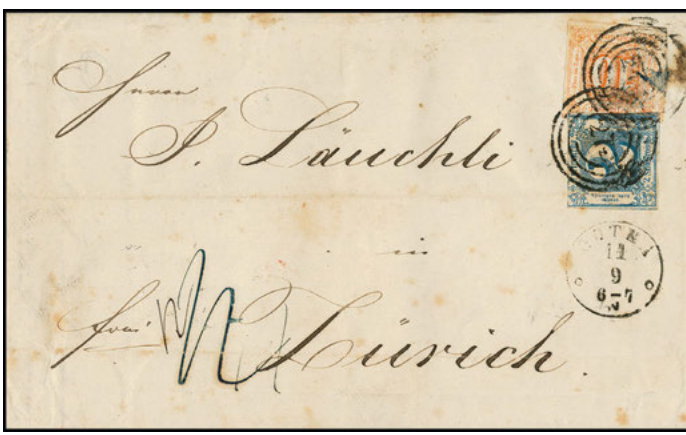 Herrn
J. Läuchli
in
frei
Zürich.
GOTHA
11
9
6-7
N